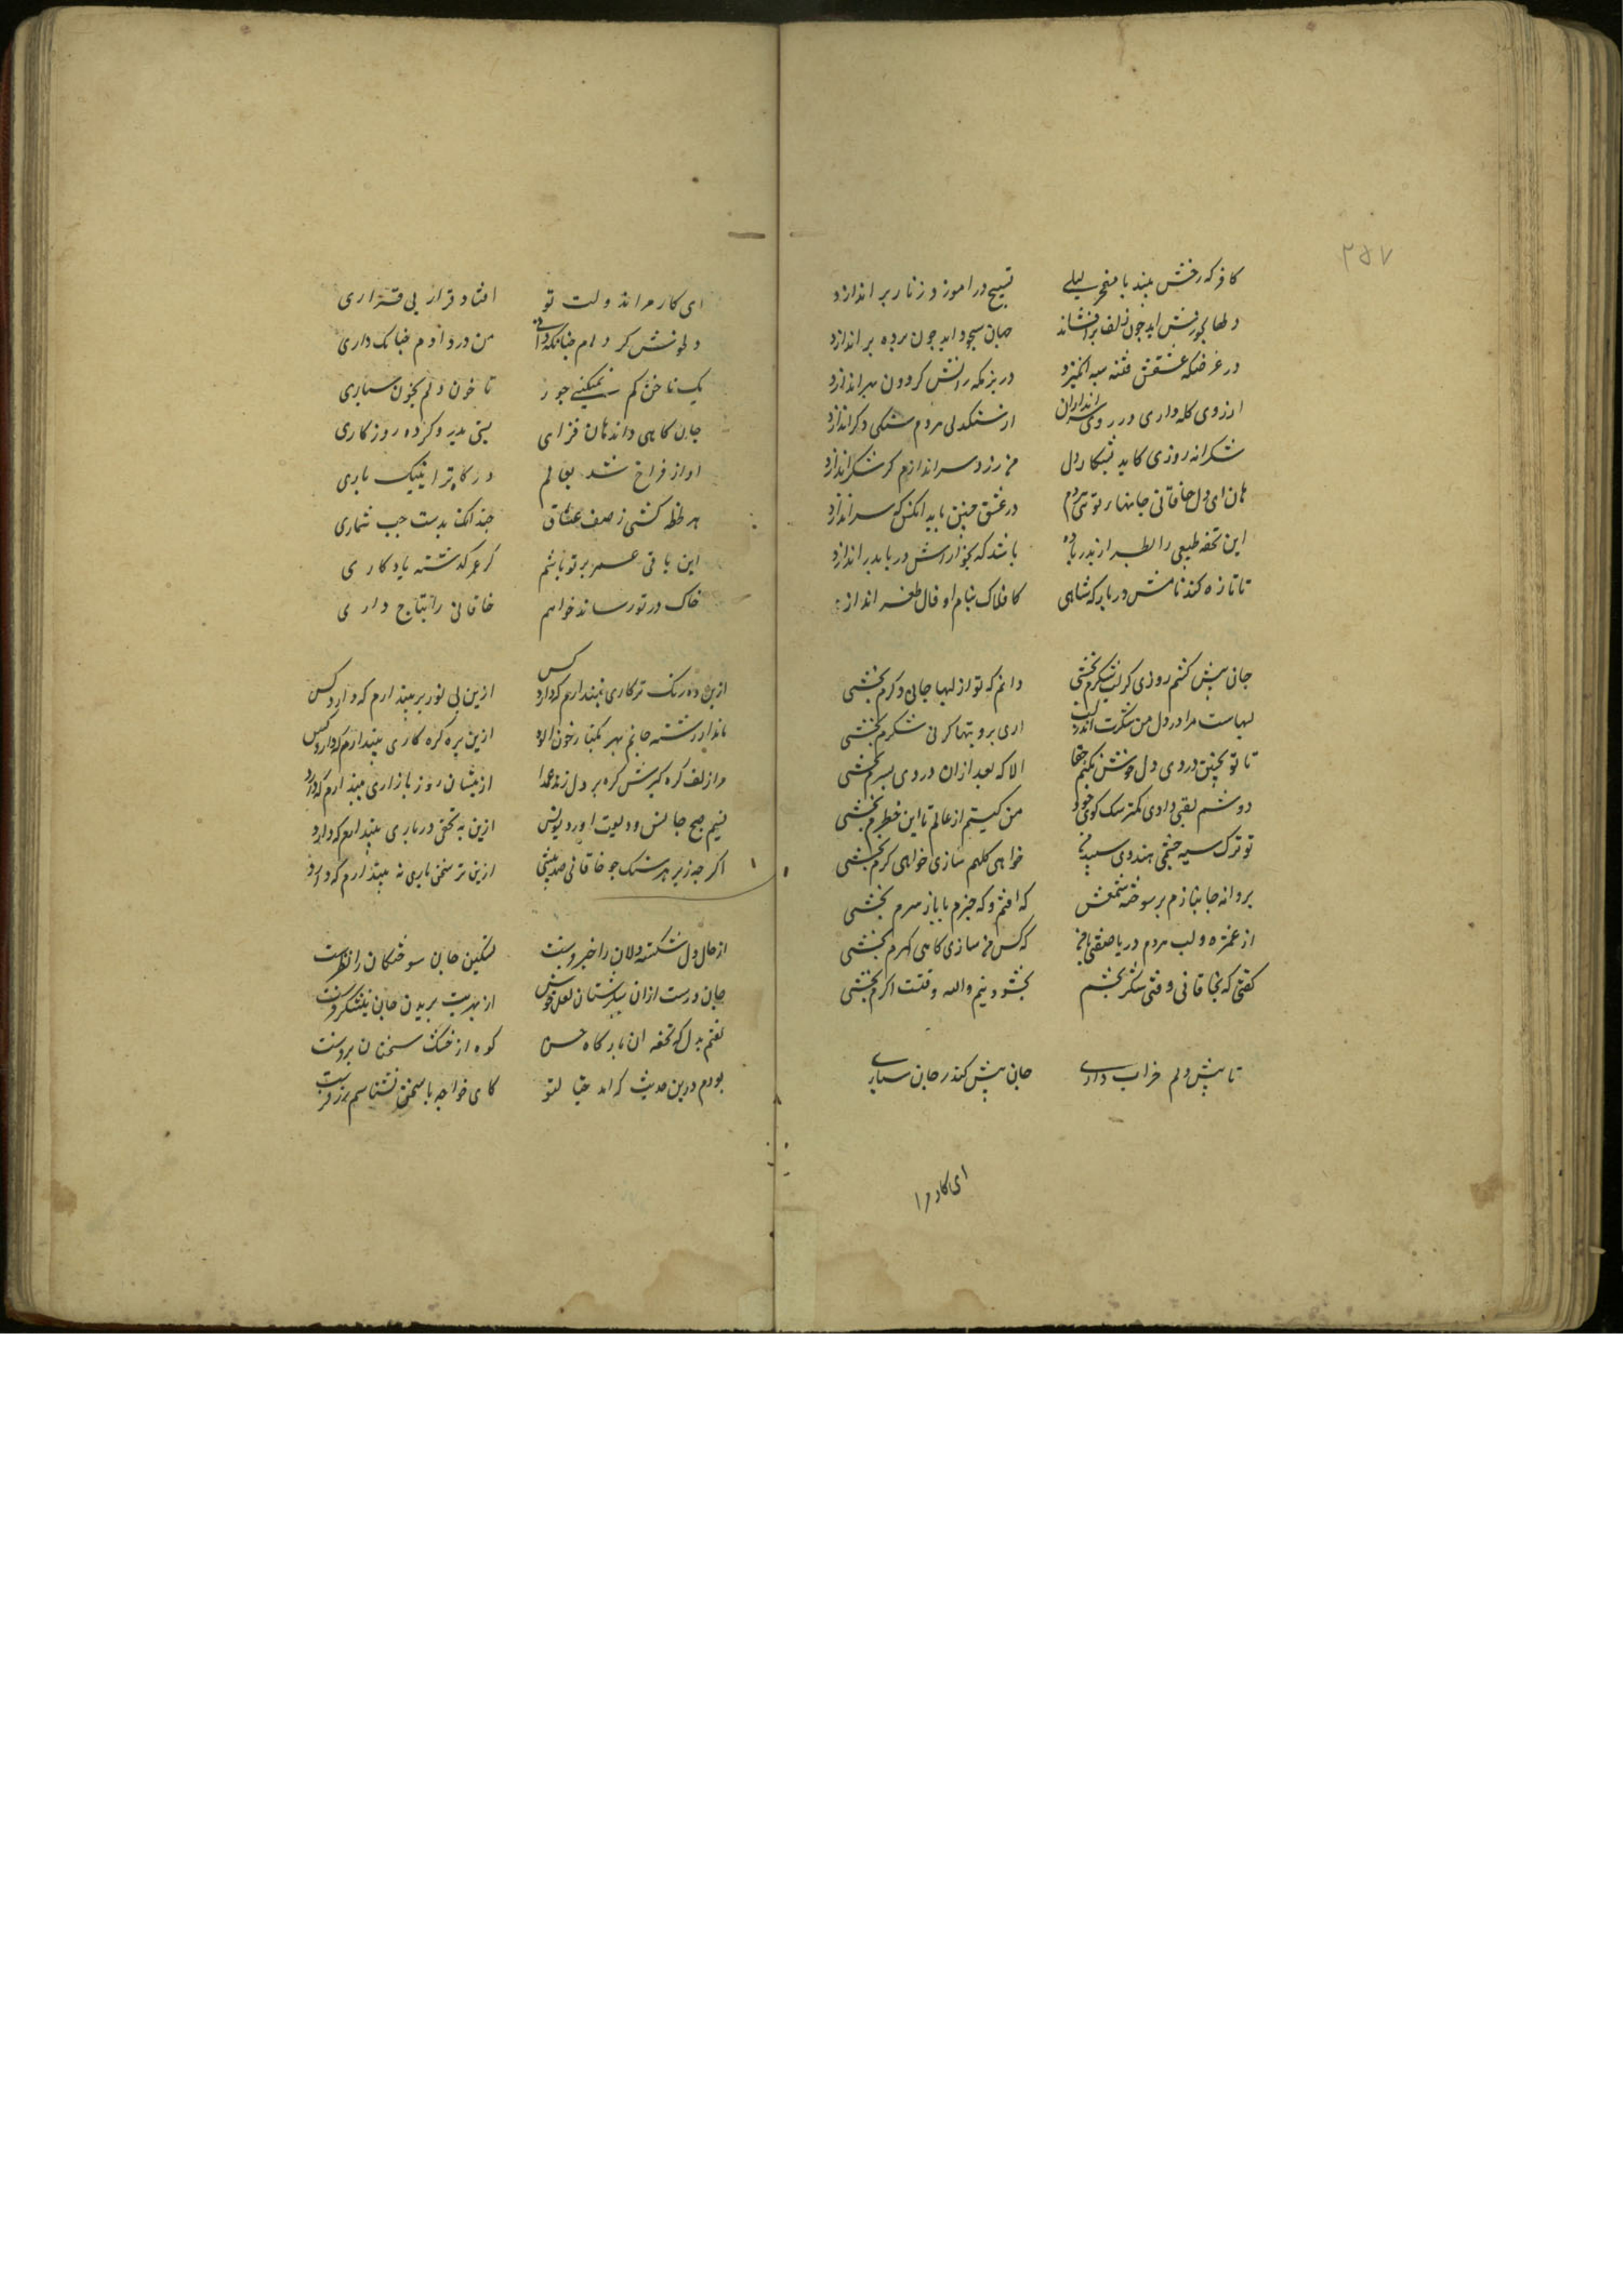 ۲۵۷
کافر که رخش بیند با معجز لبلی تسبیح در آموزد زنار براندازد
دلها بخروش اید چون زلف برافشاند جانها بسجود اید چون پرده براندازد
در عرضگه عشقش فتنه سپه انگیزد در بزمگه رازش گردون سپر اندازد
از روی کله داری در روی سراندازان از سنگدلی هر دم سنگی دگر اندازد
شکرانه روزی کاید بشکار دل من زر و سر اندازم گر شکر اندازد
هان ای دل خاقانی جانها ر تو هر دم در عشق چنین باید انکس که سر اندازد
این تحفه طبعی را بطراز و بدریا ده باشد که بخوارزمش دریا بدر اندازد
تا تازه کند نامش در بارگه شاهی کافلاک بنام او فال ظفر اندازد
جانی پیش کشم روزی کز لب شکرم بخشی دانم که تو از لبها جانی دگرم بخشی
لبهاست مرا در دل من شکرت اندر لب اری برو بتها کر نی شکرم بخشی
تا تو بچنین دردی دل خوش نکنم حقا الا که بعد ازان دردی بسرم بخشی
دوشم لقبی دادی کمتر سک کوی خود من کیستم از عالم تا این خطرم بخشی
تو ترک سیه چشمی هندوی سپید من خواهی کلهم سازی خواهی کمرم بخشی
پروانه جانبازم پر سوخته شمعش که افتم و که خیزم تا باز پرم بخشی
از غمزه و لب هر دم دریا صفتی با من که کس من سازی کاهی کهرم بخشی
کفتی که بخاقانی وقتی شکر بخشم بخشودنیم والله وقتست اگرم بخشی
تا پیش دلم خراب داری جان پیش کشد ز جان سپاری
ای کار مرا
ای کار مرا ز دولت تو افتاد قرار بی قراری
دل خوش کردم چنانکه دانی تن در دادم چنانک داری
یک ناخن کم نمیکنی جور تا خون دلم بخون سپاری
جان کاهی و اندهان فزای بینی بدی و کرده روزکاری
اواز فراخ شد بعالم در کار تر اینیک باری
هر لحظه کشی ز صف عشاق چندانک بدست چپ شماری
این باقی عمر بر تو باشم کر عمر گذشته یادگاری
خاک در تو رساند خواهم خاقانی را بتاج داری
ازین ده رنک تر کاری نپندارم که دارد کس ازین بی نور بر پندارم که دارد کس
نماند از رشته جانم بهر یکتار خون الود ازین پر گره کاری نپندارم که دارد کس
مرا زلف گره گیرش گره بر دل زند عمدا ازینسان روز بازاری نپندارم که دارد
نسیم صبح جانش ودیعت اورد بویش ازین به تحفه دربازی نپندارم که دارد
اگر چه زیر هر سنک چو خاقانی صد بینی ازین تر سخن باری نه پندارم که دارد
از حال دل شکسته دلان را خبر فرست تسکین جان سوختگان را نظر فرست
جان درست ازان شکرستان لعل خویش از بهر تب بریدن جان نیشکر فرست
گفتم بدل که تحفه ان بارگاه حسن کوه از خشک سخنان برفرست
بودم درین حدیث که امد خیال تو کای خواجه با سخن نشناسم زر فرست